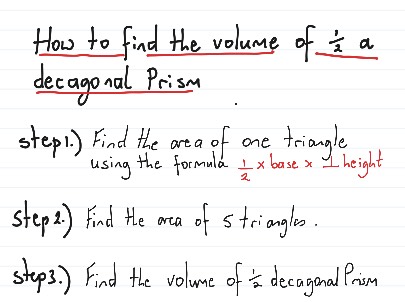 How to find the volume of ½ a
decagonal Prism
step 1.) Find the area of one triangle
using the formula ½ × base × ⊥ height
step 2.) Find the area of 5 triangles.
step 3.) Find the volume of ½ decagonal Prism